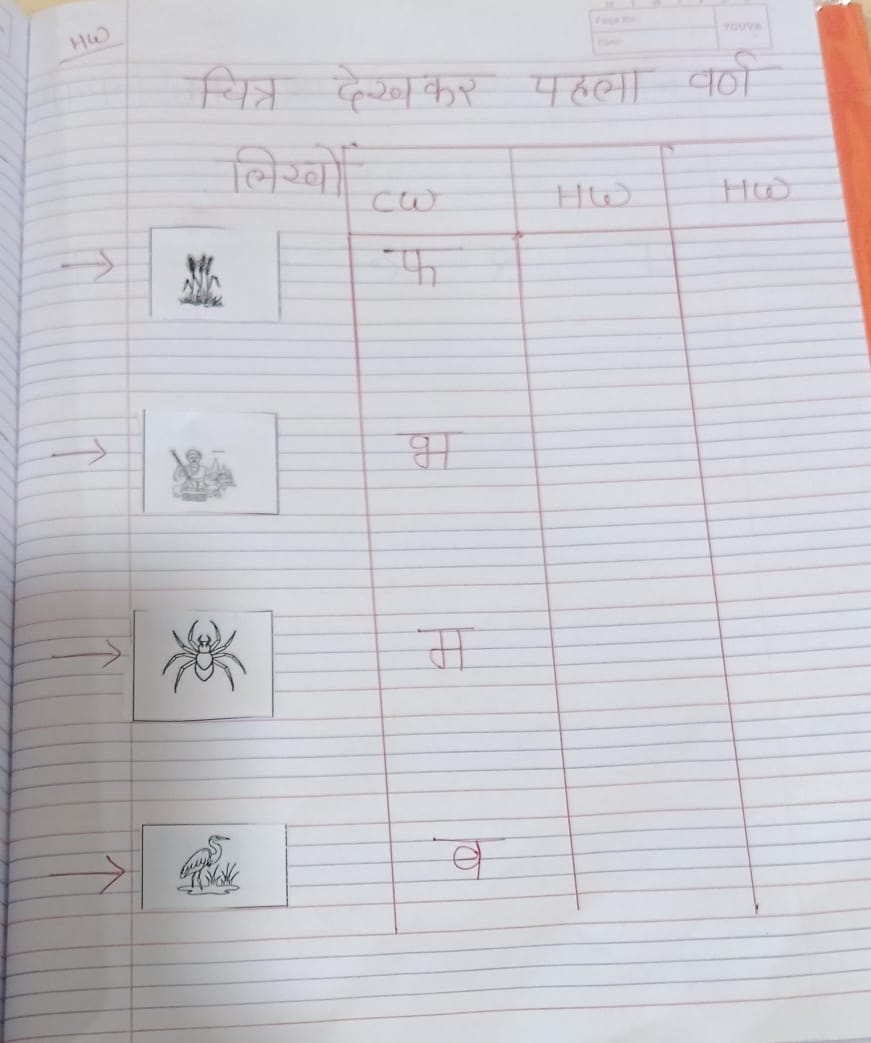 HW
Page No.:
Date:
YOUVA
चित्र देखकर पहला वर्ण
लिखो
CW HW HW
→ फ
→ भ
→ म
→ ब